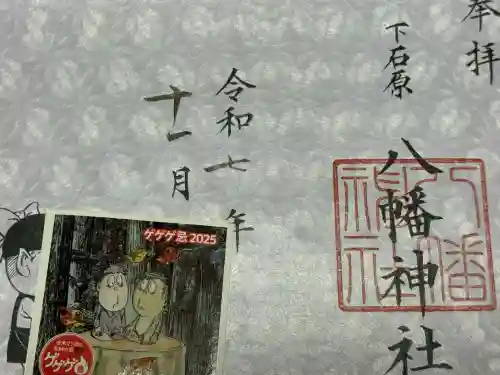 奉拝
下石原
八幡神社
令和七年
十一月
ゲゲゲ忌2025
ゲゲゲ